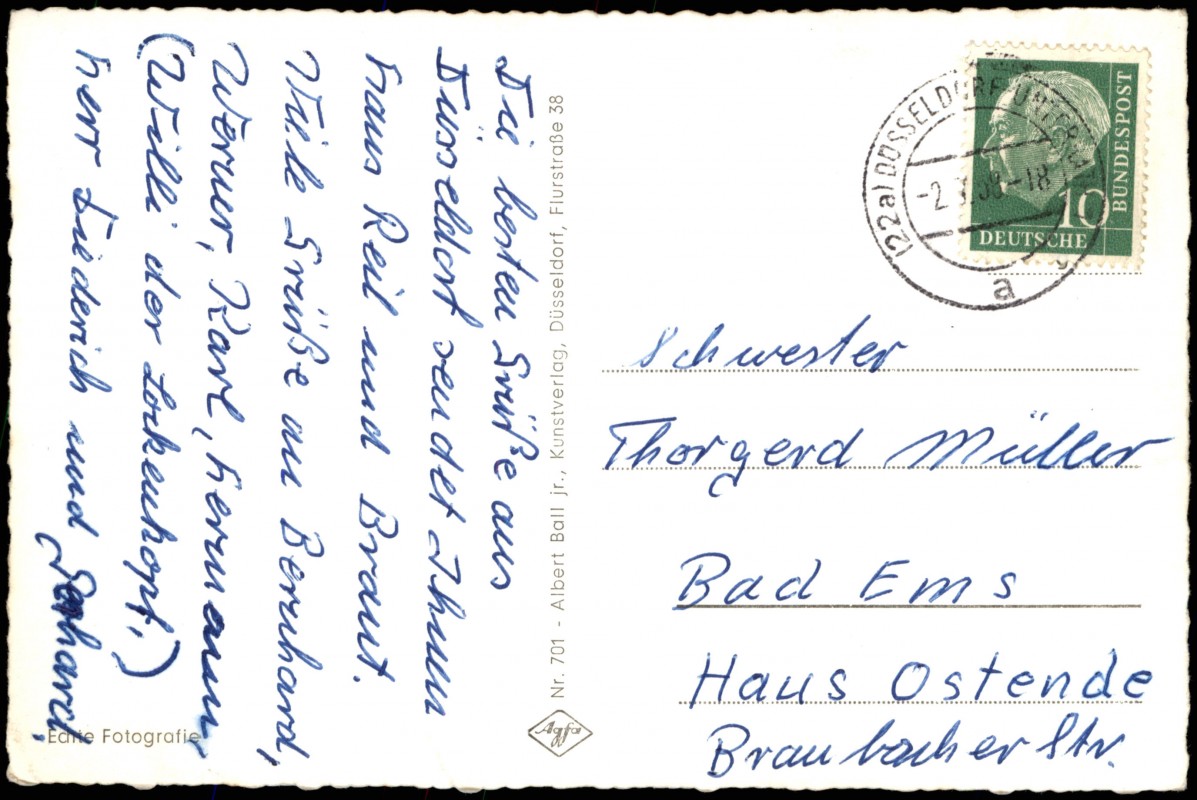 Die besten Grüße aus
Düsseldorf sendet Ihnen
Hans Reil und Braut.
Viele Grüße an Bernhard,
Werner, Karl, Hermann,
(Willi der Lockenkopf,)
Herr Diederich und
Nr. 701 - Albert Ball jr., Kunstverlag, Düsseldorf, Flurstraße 38
Agfa
Echte Fotografie
(22a) DÜSSELDORF-UNTER
-2. 58-18
a
BUNDESPOST
10
DEUTSCHE
Schwester
Thorgerd Müller
Bad Ems
Haus Ostende
Braubacher Str.